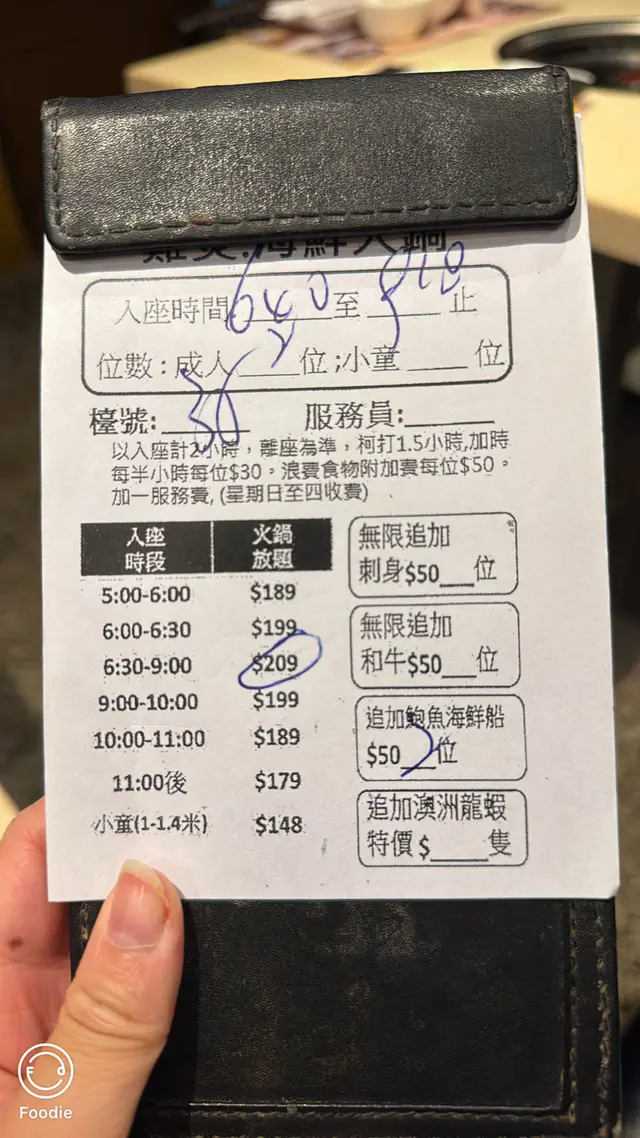 海鮮火鍋
入座時間 640 至 ____ 止
位數：成人 2 位；小童 ____ 位
檯號： 36 服務員：____
以入座計2小時，離座為準，柯打1.5小時,加時
每半小時每位$30。浪費食物附加費每位$50。
加一服務費, (星期日至四收費)
入座時段 火鍋放題
5:00-6:00 $189
6:00-6:30 $199
6:30-9:00 $209
9:00-10:00 $199
10:00-11:00 $189
11:00後 $179
小童(1-1.4米) $148
無限追加
刺身$50___位
無限追加
和牛$50___位
追加鮑魚海鮮船
$50 2 位
追加澳洲龍蝦
特價$____隻
Foodie